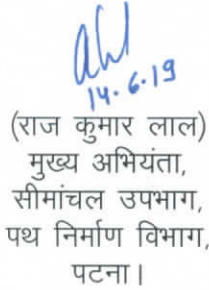 14.6.19
(राज कुमार लाल)
मुख्य अभियंता,
सीमांचल उपभाग,
पथ निर्माण विभाग,
पटना।